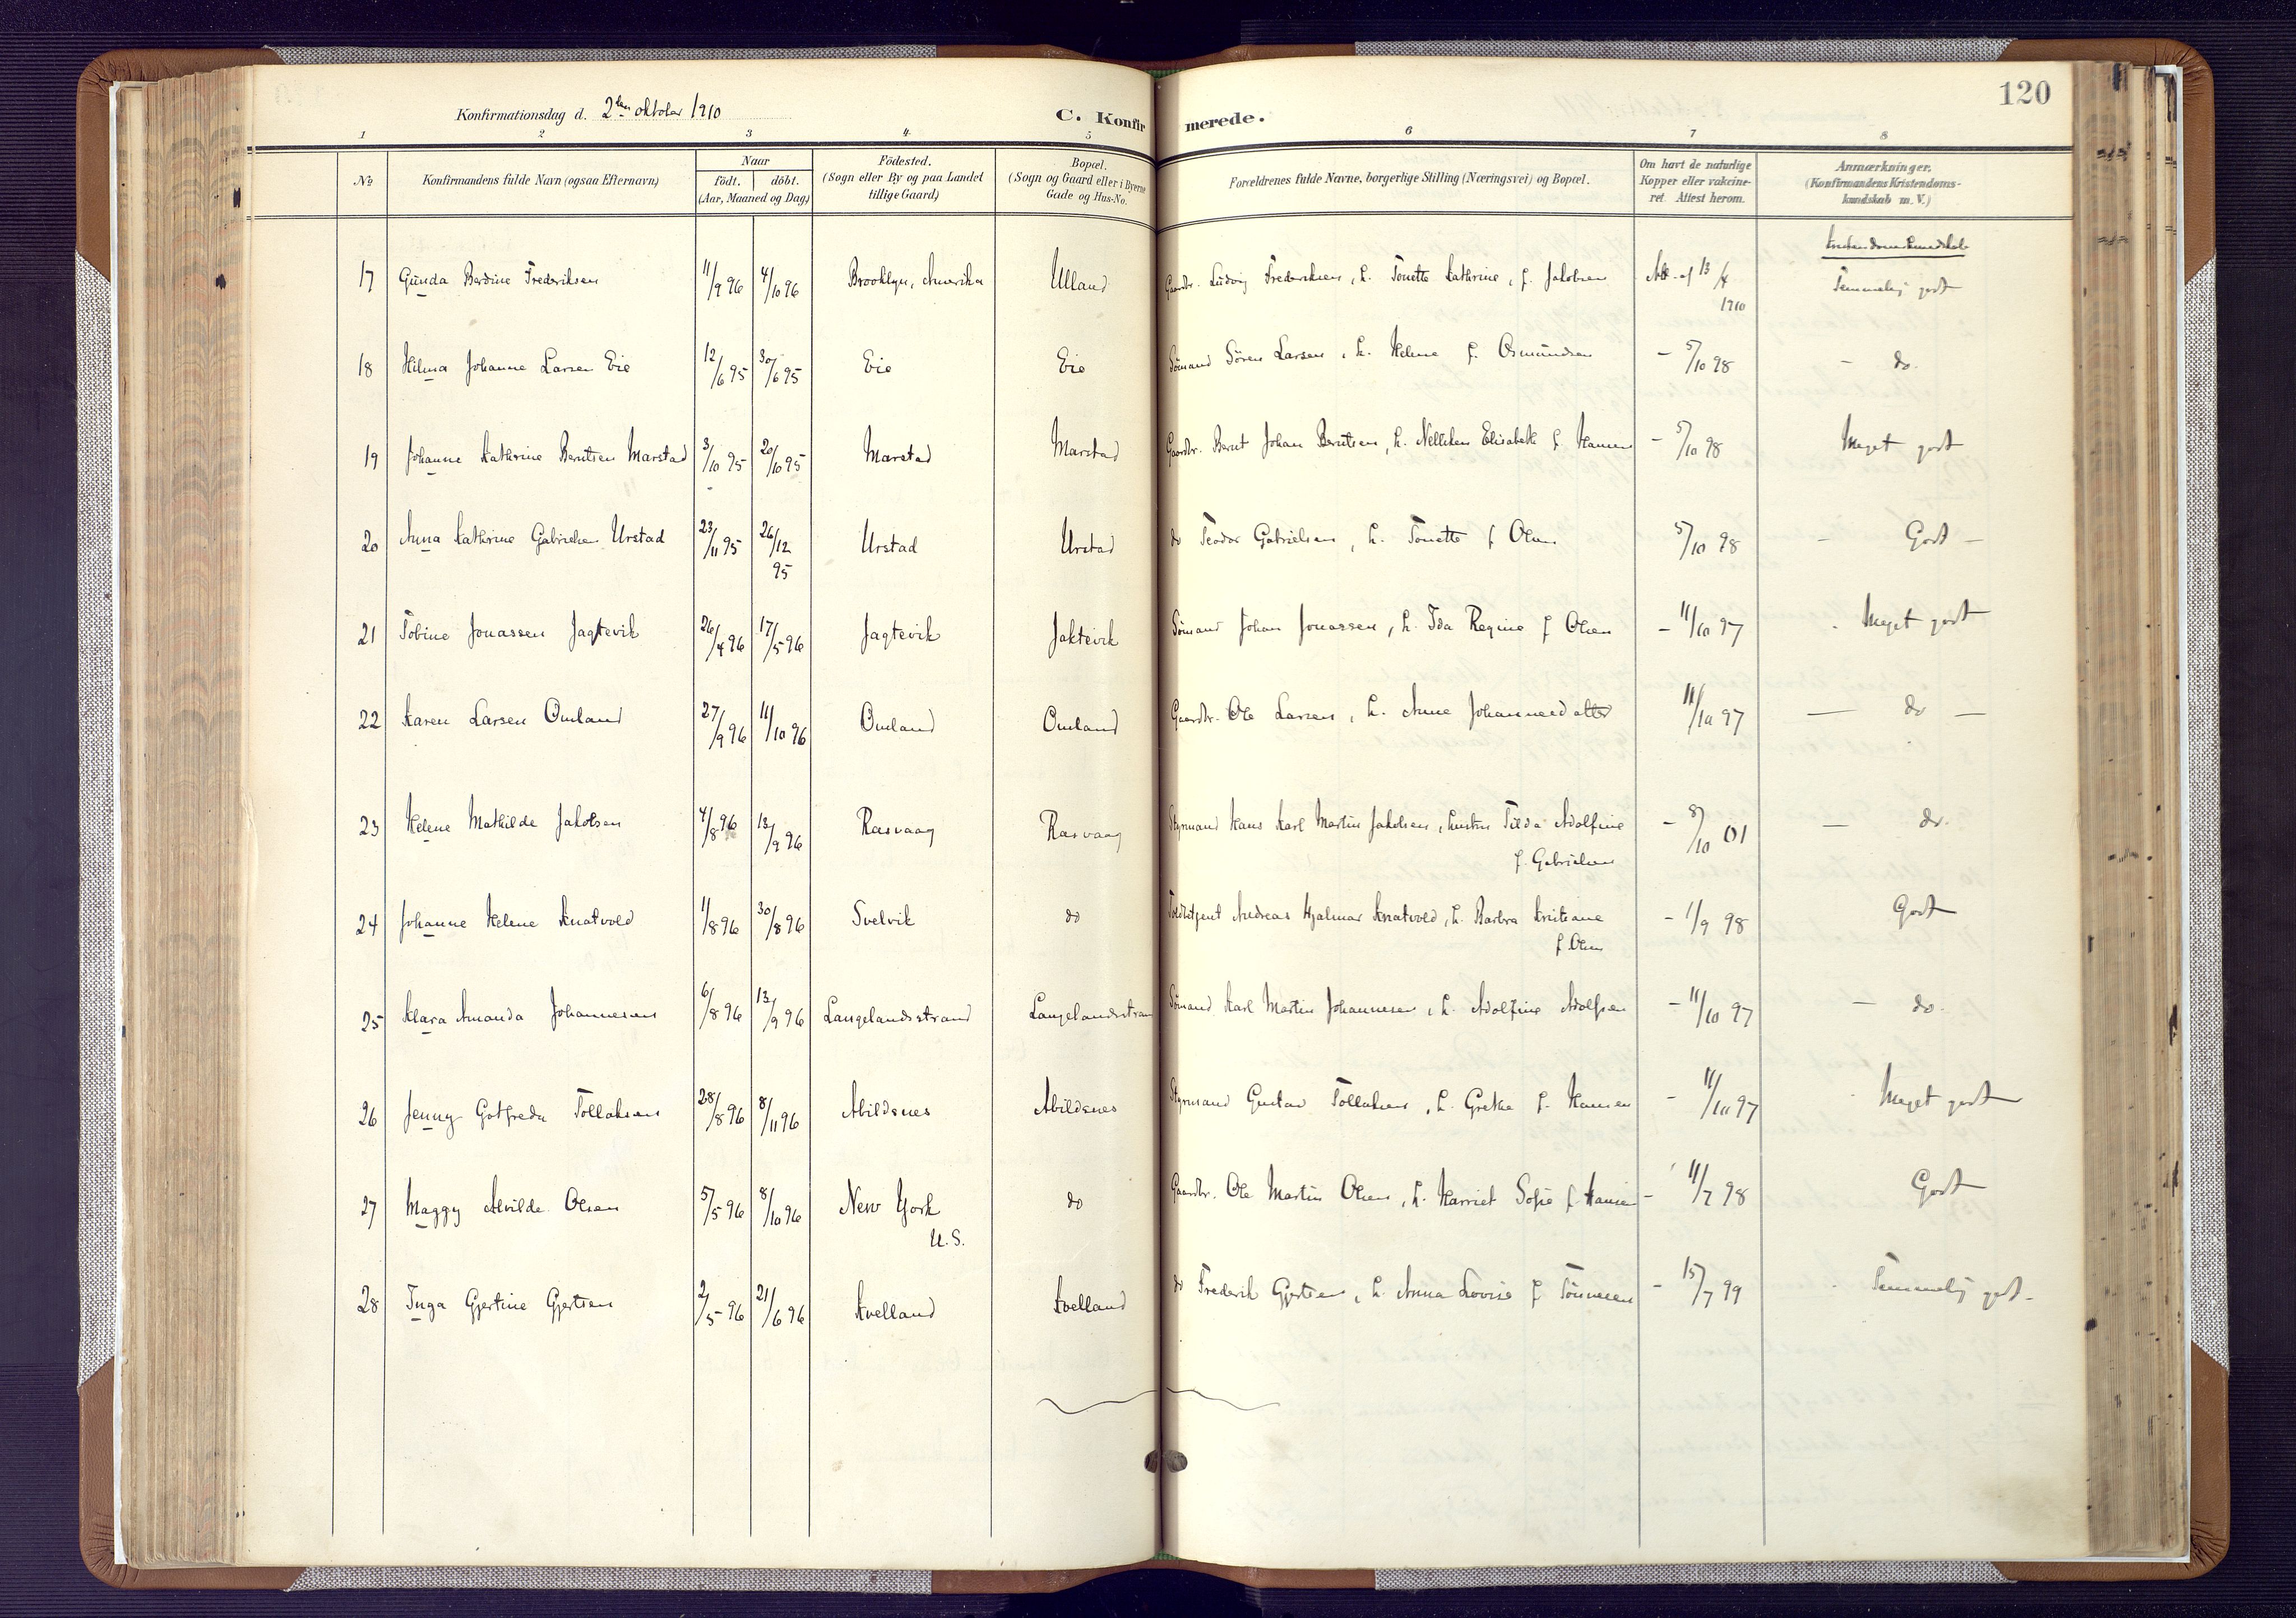 120
Konfirmationsdag d. 2den oktober 1910
C. Konfirmerede.
1 2 3 4 5 6 7 8
No
Konfirmandens fulde Navn (ogsaa Efternavn)
Naar
födt. döbt.
(Aar, Maaned og Dag)
Födested.
(Sogn eller By og paa Landet
tillige Gaard)
Bopæl.
(Sogn og Gaard eller i Byerne
Gade og Hus-No.
Forældrenes fulde Navne, borgerlige Stilling (Næringsvei) og Bopæl.
Om havt de naturlige
Kopper eller vakcine-
ret. Attest herom.
Anmærkninger.
(Konfirmandens Kristendoms-
kundskab m. V.)
Kristendomskundskab
17 Gunda Berdine Frederiksen 11/9 96 4/10 96 Brooklyn, Amerika Ulland Gaardbr. Ludvig Frederiksen, h. Tonette Kathrine, f. Jakobsen Att. af 13/4 Temmelig godt
1910
18 Hilma Johanne Larsen Eie 12/6 95 30/6 95 Eie Eie Sømand Sören Larsen, h. Helene f. Osmundsen - 5/10 98 - do.
19 Johanne Kathrine Berntsen Marstad 3/10 95 20/10 95 Marstad Marstad Gaardbr. Bernt Johan Berntsen, h. Nelliken Elisabeth f. Hansen - 5/10 98 Meget godt
20 Anna Kathrine Gabrielsen Urstad 23/11 95 26/12 95 Urstad Urstad do Teodor Gabrielsen, h. Tonette f Olsen 5/10 98 - Godt -
21 Tobine Jonassen Jagtevik 26/4 96 17/5 96 Jagtevik Jaktevik Sömand Johan Jonassen, h. Ida Regine f Olsen - 11/10 97 Meget godt
22 Karen Larsen Omland 27/9 96 11/10 96 Omland Omland Gaardbr. Ole Larsen, h. Anne Johannesdatter 11/10 97 - do -
23 Helene Mathilde Jakobsen 4/8 96 13/9 96 Rasvaag Rasvaag Styrmand Hans Karl Martin Jakobsen, hustru Tilda Adolfine - 8/10 01 - do.
f. Gabrielsen
24 Johanne Helene Knatvold 11/8 96 30/8 96 Svelvik do Andreas Hjalmar Knatvold, h. Barbra Kristiane - 1/9 98 Godt
f. Olsen
25 Klara Amanda Johannesen 6/8 96 13/9 96 Langelandsstrand Langelandsstran Sömand Karl Martin Johannesen, h. Adolfine Adolfsen - 11/10 97 - do.
26 Jenny Gotfreda Tollaksen 28/8 96 8/11 96 Abildsnes Abildsnes Styrmand Gustav Tollaksen, h. Grethe f. Hansen - 11/10 97 Meget godt
27 Maggy Alvilde Olsen 5/5 96 8/10 96 New York do Gaardbr. Ole Martin Olsen, h. Harriet Sofie f. Hansen - 11/7 98 Godt
U. S.
28 Inga Gjertine Gjertsen 2/5 96 21/6 96 Kvelland Kvelland do Frederik Gjertsen, h. Anna Lovise f Tönnesen - 15/7 99 Temmelig godt.